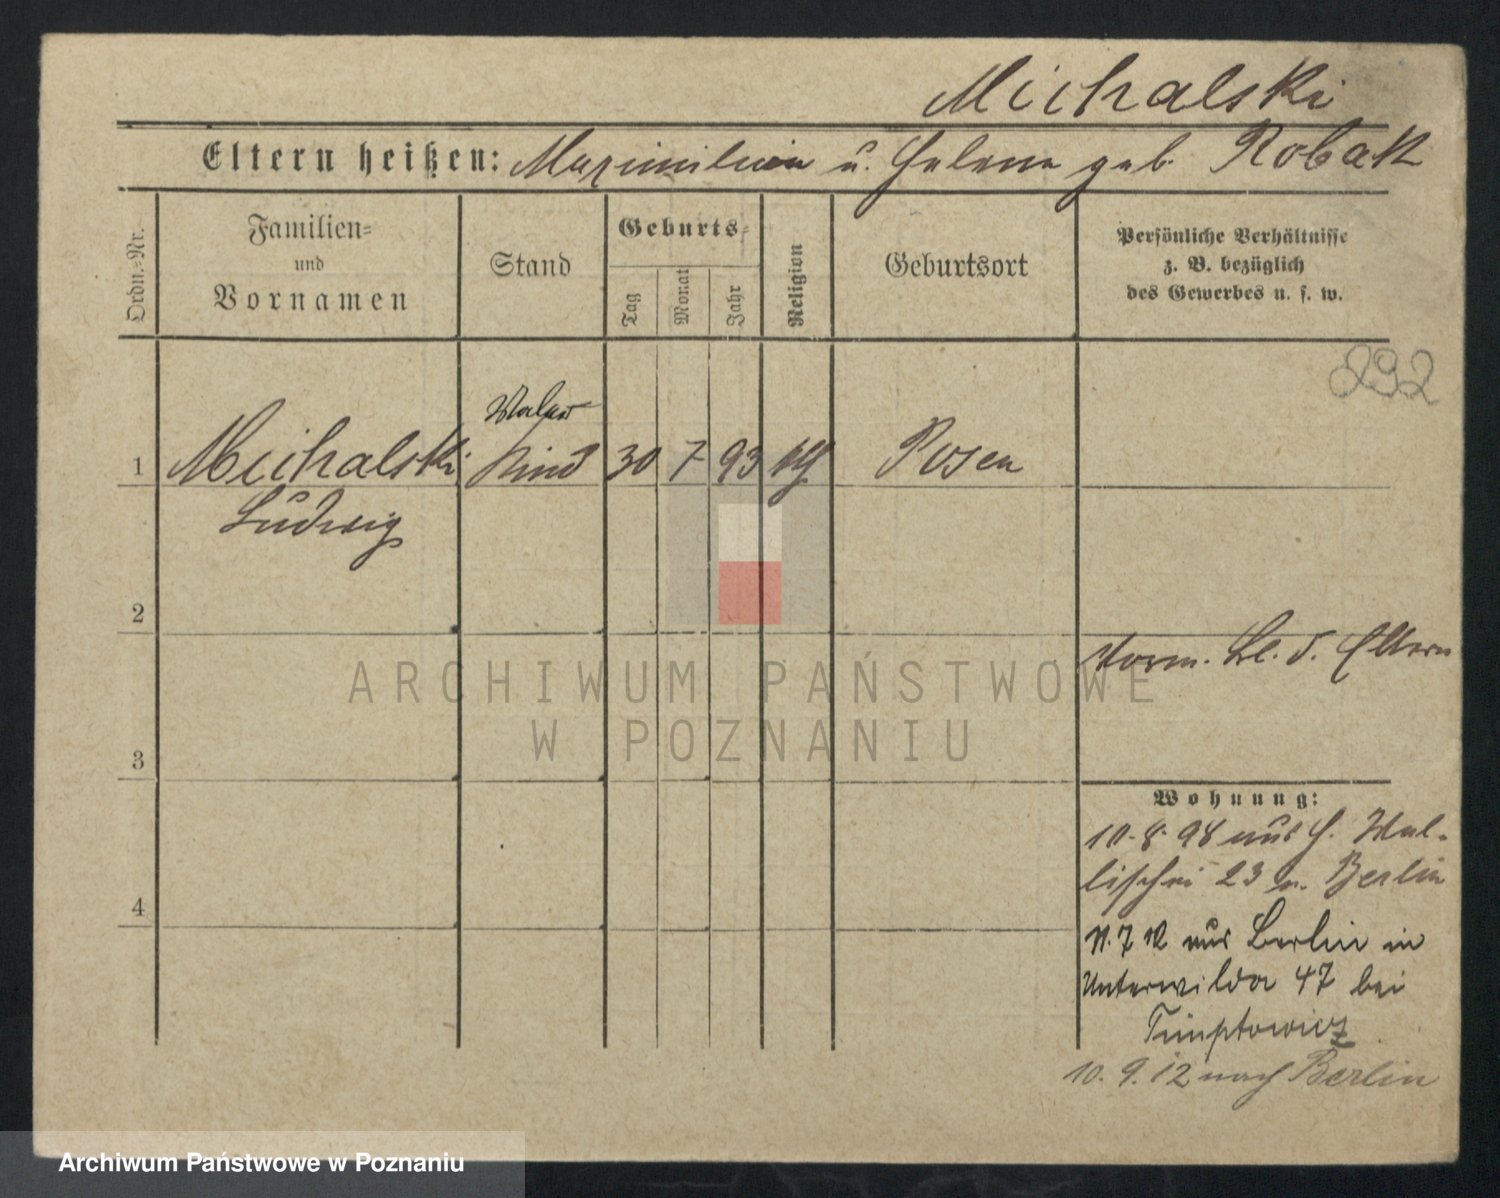 Michalski
Eltern heißen: Maximilian u. Helene geb. Robak
Ordn.-Nr.
Familien-
und
Vornamen
Stand
Geburts-
Tag
Monat
Jahr
Religion
Geburtsort
Persönliche Verhältnisse
z. B. bezüglich
des Gewerbes u. s. w.
292
Maler
1 Michalski Kind 30 7 93 Posen
Ludwig
2
Vorm. Bl. d. Eltern
3
Wohnung:
10.8.98 aus H. Wal-
lischei 23 n. Berlin
4
11.7 12 aus Berlin in
Unterwilda 47 bei
10.9.12 nach Berlin
ARCHIWUM PAŃSTWOWE
W POZNANIU
Archiwum Państwowe w Poznaniu